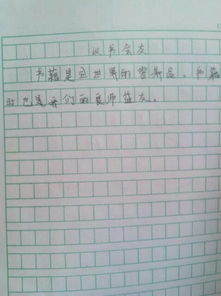 以书会友
书籍是全世界的营养品。书籍
时也是我们的良师益友。